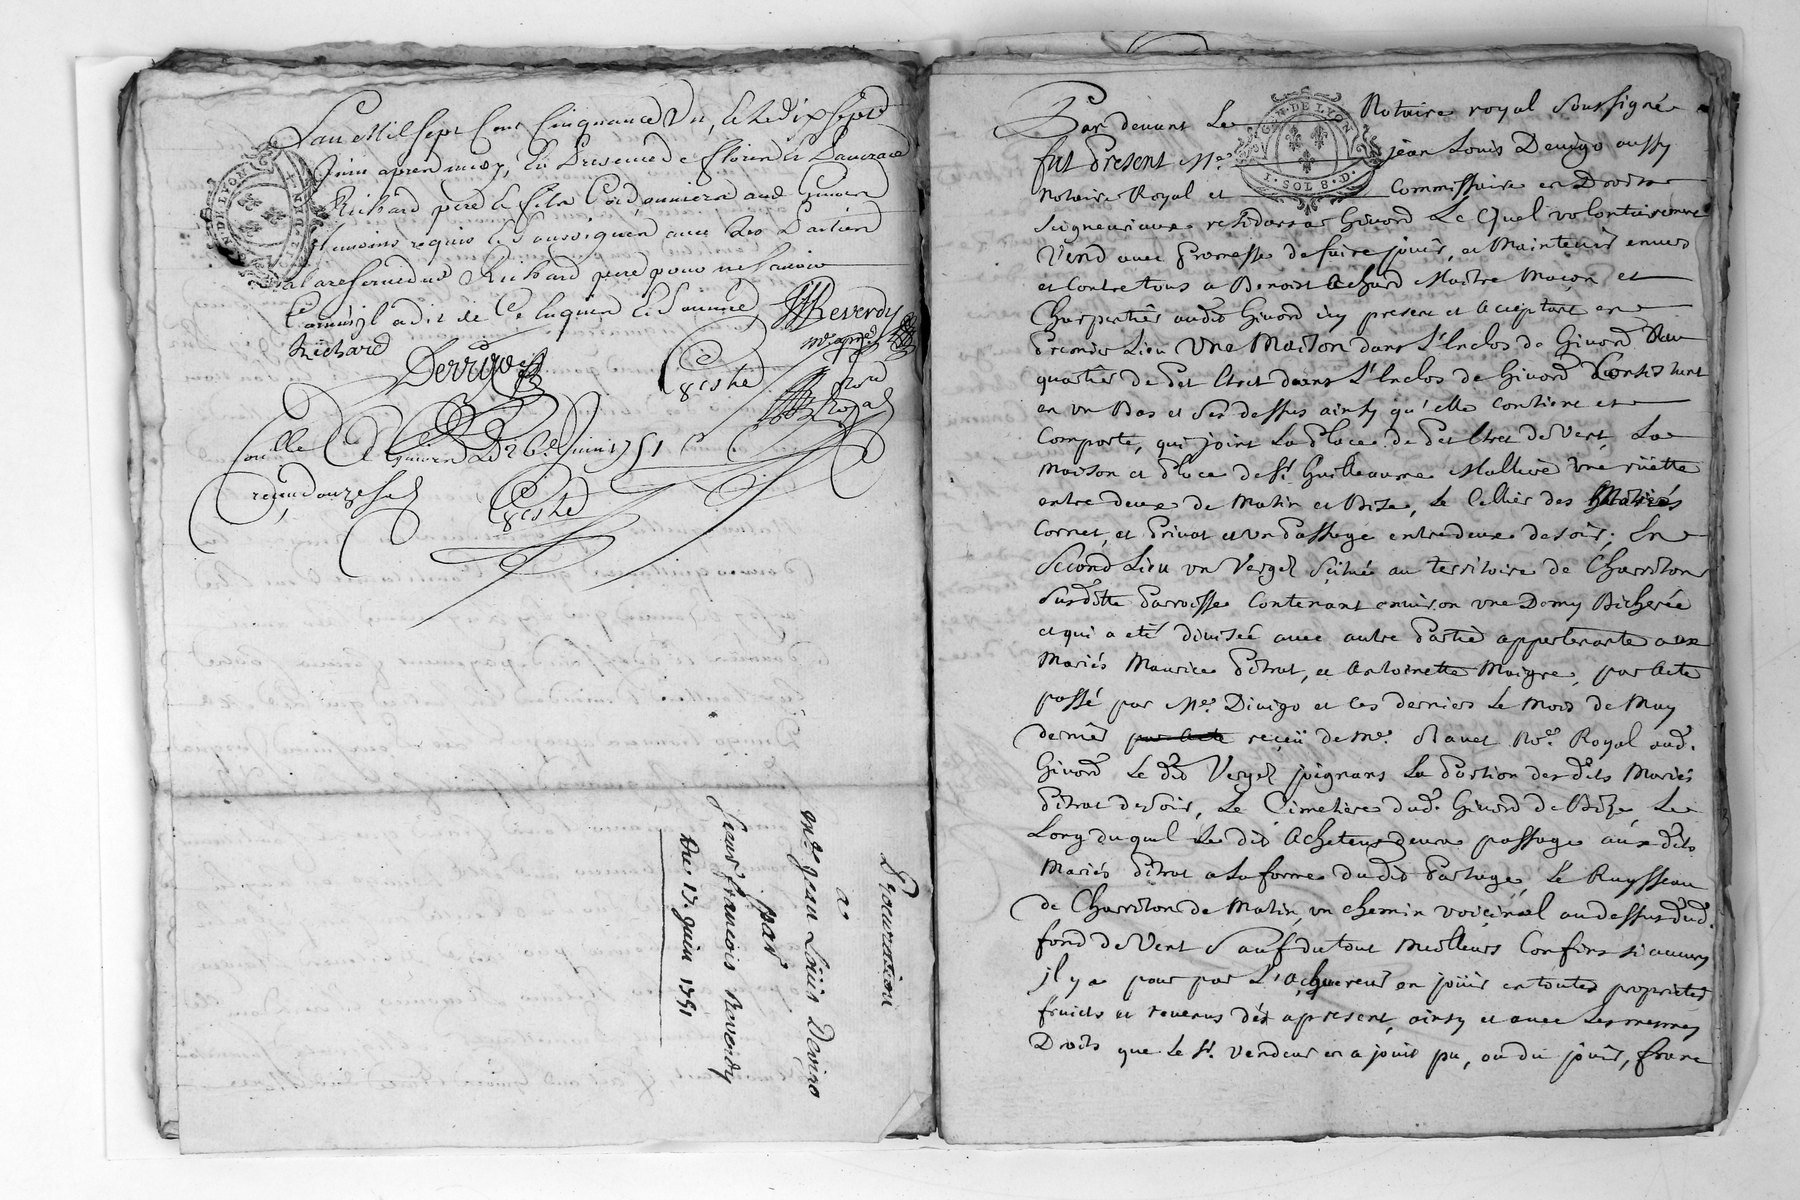 L'an Mil sept Cent Cinquante Un, et le dix sept
Juin apres midy, En Presence de
Richard pere & fils Cordonniers aud. Givors
temoins requis Et soussignés avec Les Parties
a la reserve dud. Richard pere pour ne Scavoir
Comm'il a dit de Ce Enquis Et Sommé
Reverdy
Richard
Derriyes
Geste
not. Royal
Conllé a Givors Le 26e. Juin 1751
reçu douze sols
Geste
Procuration
a
Mre. Jean Loüis Devigo
par
Sieur francois Reverdy
Du 17. Juin 1751
GEN. DE LYON
GEN. DE LYON
1. SOL 8. D.
Par devant Le Notaire royal Soussigné
fut Present Me. jean Louis Devigo aussy
Notaire Royal et Commissaire en Droits
Seigneuriaux residans a Givord Le Quel volontairement
Vend avec Promesse de faire jouir, et Maintenir envers
et Contre tous a Benoist Achard Maitre Maçon et
Charpentier audit Givord icy present et acceptant en
Premier Lieu Une Maison dans L'Enclos de Givord Dau
quartier de Pet Etret dans L'Enclos de Givord Consistant
en un Bas et des dessus ainsy qu'elle contient et
Comporte, qui joint La Place de Pet Etret de Vent, La
Maison et Place de Sr. Guilleaume Mallivre une rüette
entre deux de Matin et Bize, Le Cellier des Mariés
Cornet, et Privat et un Passage entredeux de soir; En
Second Lieu un Verger Scitué au territoire de Charriton
Susditte Parroisse Contenant environ une Demy Bicherée
et qui a eté divisée avec autre Partie appartenante aux
Mariés Maurice Pitrat, et Antoinette Maigre, par Acte
passé par Me. Divigo et ces derniers Le Mois de May
dernier par Acte reçeü de Me. Not. Royal aud.
Givord Le dit Verger joignans La Portion des dits Mariés
Pitrat de soir, Le Cimetiere dud. Givord de Bize, Le
Long duquel Le dit Acheteur devra passage aux dits
Mariés Pitrat a La forme dudit Partage, Le Ruysseau
de Charriton de Matin, un chemin voiçinal au dessus dud.
fond de Vent Sauf du tout Meilleurs Confins si aucuns
il y a pour par L'acquereur en joüir en toutes proprietés
fruicts et revenus dés apresent, ainsy et avec Les mesmes
Droits que Le Sr. Vendeur en a jouit pu, ou du joüir, franc